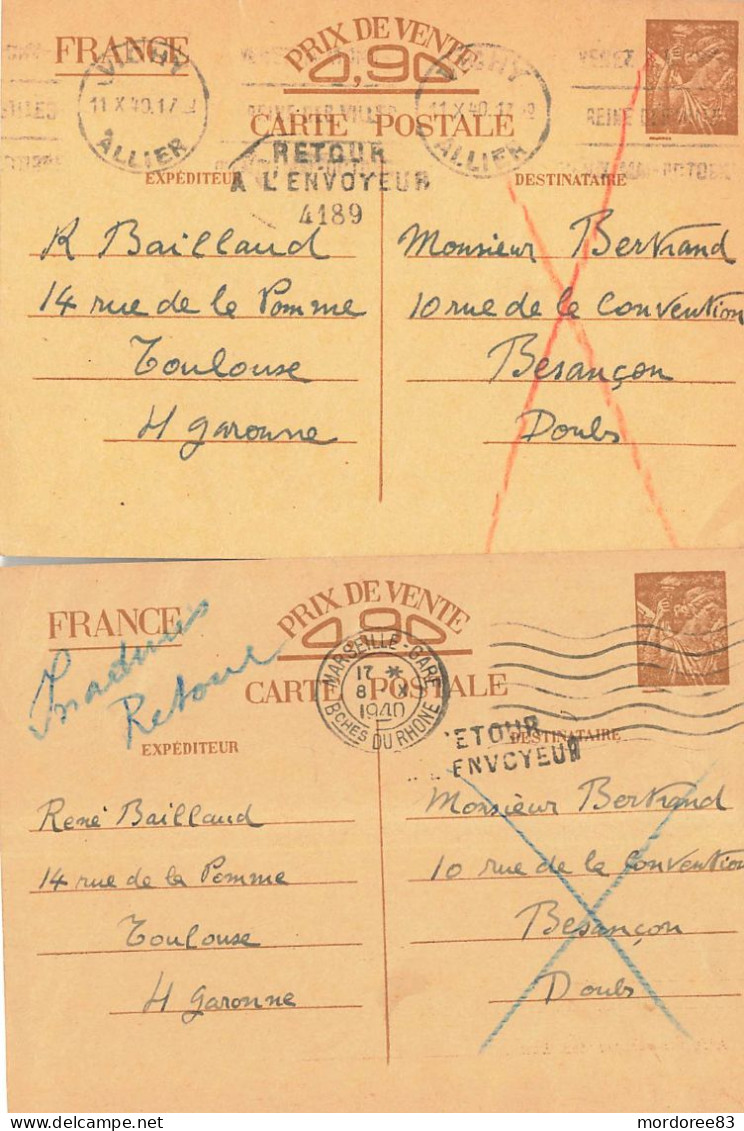 FRANCE
PRIX DE VENTE
0,90
CARTE POSTALE
VICHY
11 X 40.17
ALLIER
REINE DES VILLES
VICHY
11 X 40.17
ALLIER
REINE DES
RETOUR
A L'ENVOYEUR
4189
EXPÉDITEUR
R Baillaud
14 rue de la Pomme
Toulouse
H Garonne
DESTINATAIRE
Monsieur Bertrand
10 rue de la Convention
Besançon
Doubs
FRANCE
PRIX DE VENTE
0,90
CARTE POSTALE
Retour
MARSEILLE-GARE
21 *
8 X
1940
Bches DU RHONE
ETOUR
ENVOYEUR
EXPÉDITEUR
René Baillaud
14 rue de la Pomme
Toulouse
H Garonne
DESTINATAIRE
Monsieur Bertrand
10 rue de la Convention
Besançon
Doubs
mordoree83